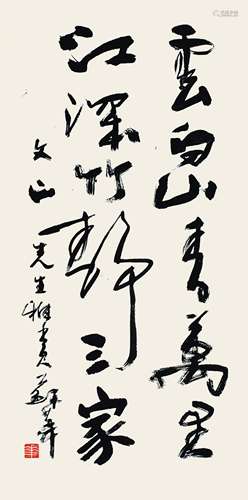 雲白山青萬里
江深竹靜三家
文山先生雅賞 蘇華